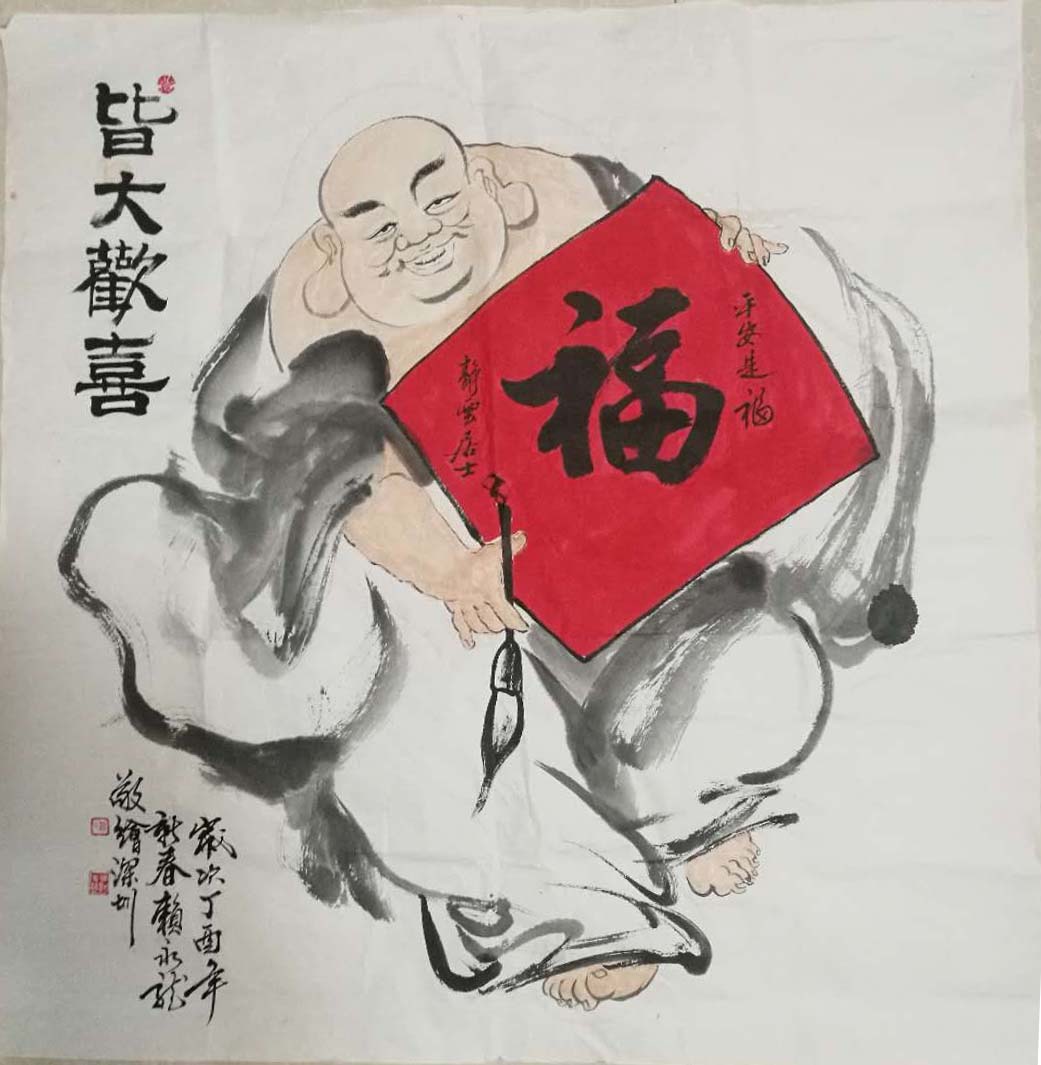 皆大歡喜
平安是福
福
静雲居士
歲次丁酉年
新春賴永龍
敬繪深圳